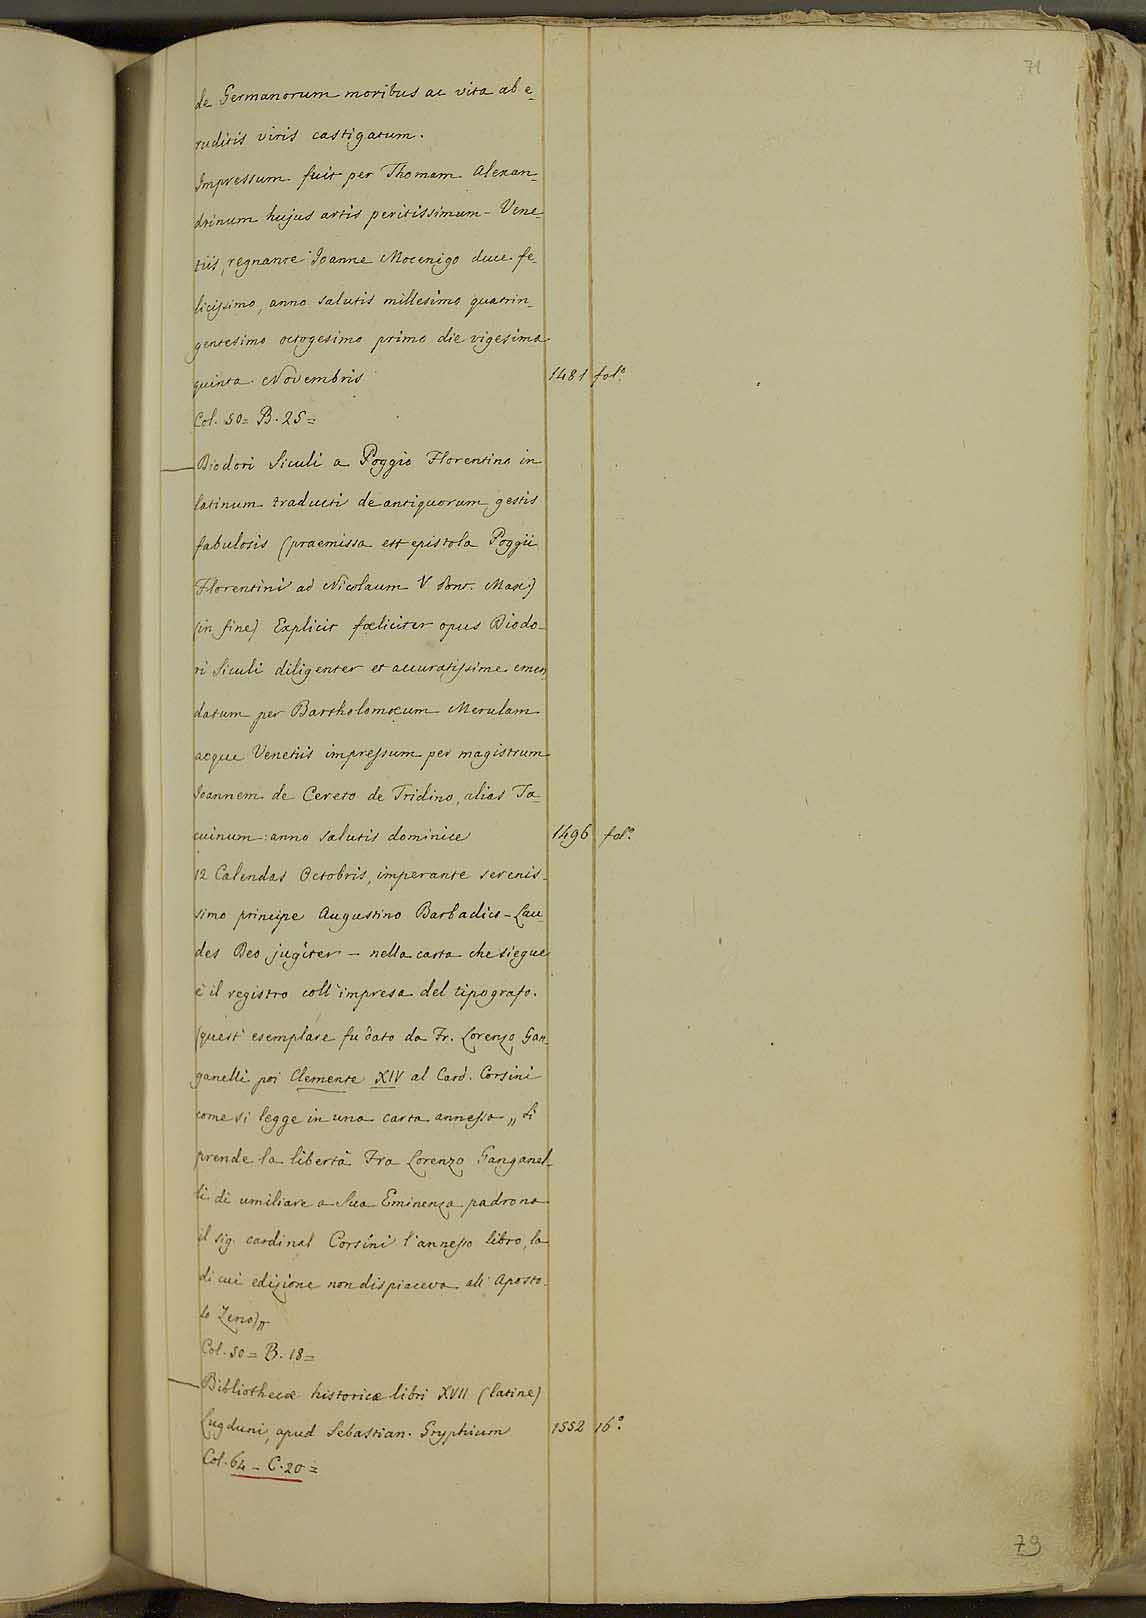 71
de Germanorum moribus ac vita ab e=
ruditis viris castigatum.
Impressum fuit per Thomam Alexan=
drinum hujus artis peritissimum - Vene=
tiis, regnante Joanne Mocenigo duce fe=
licissimo, anno salutis millesimo quatrin=
gentesimo octogesimo primo die vigesima
quinta Novembris 1481 fol.º
Col. 50 = B. 25 =
Diodori Siculi a Poggio Florentino in
latinum traducti de antiquorum gestis
fabulosis (praemissa est epistola Poggii
Florentini ad Nicolaum V Pont. Max.)
(in fine) Explicit fœliciter opus Diodo-
ri Siculi diligenter et accuratissime emen
datum per Bartholomœum Merulam
acque Venetiis impressum per magistrum
Joannem de Cereto de Tridino, alias Ta=
cuinum: anno salutis dominice 1496 fol.º
12 Calendas Octobris, imperante serenis-
simo principe Augustino Barbadico - Lau=
des Deo jugiter - nella carta che siegue
è il registro coll'impresa del tipografo.
(quest' esemplare fu dato da Fr. Lorenzo Gan=
ganelli poi Clemente XIV al Card. Corsini
come si legge in una carta annessa „ Si
prende la libertà Fra Lorenzo Ganganel-
li di umiliare a Sua Eminenza padrona
il sig. cardinal Corsini l'annesso libro, la
di cui edizione non dispiaceva all' Aposto
lo Zeno)„
Col. 50 = B. 18 =
Bibliothecæ historicæ libri XVII (latine)
Lugduni, apud Sebastian. Gryphium 1552 16.º
Col. 64 - C. 20 =
79